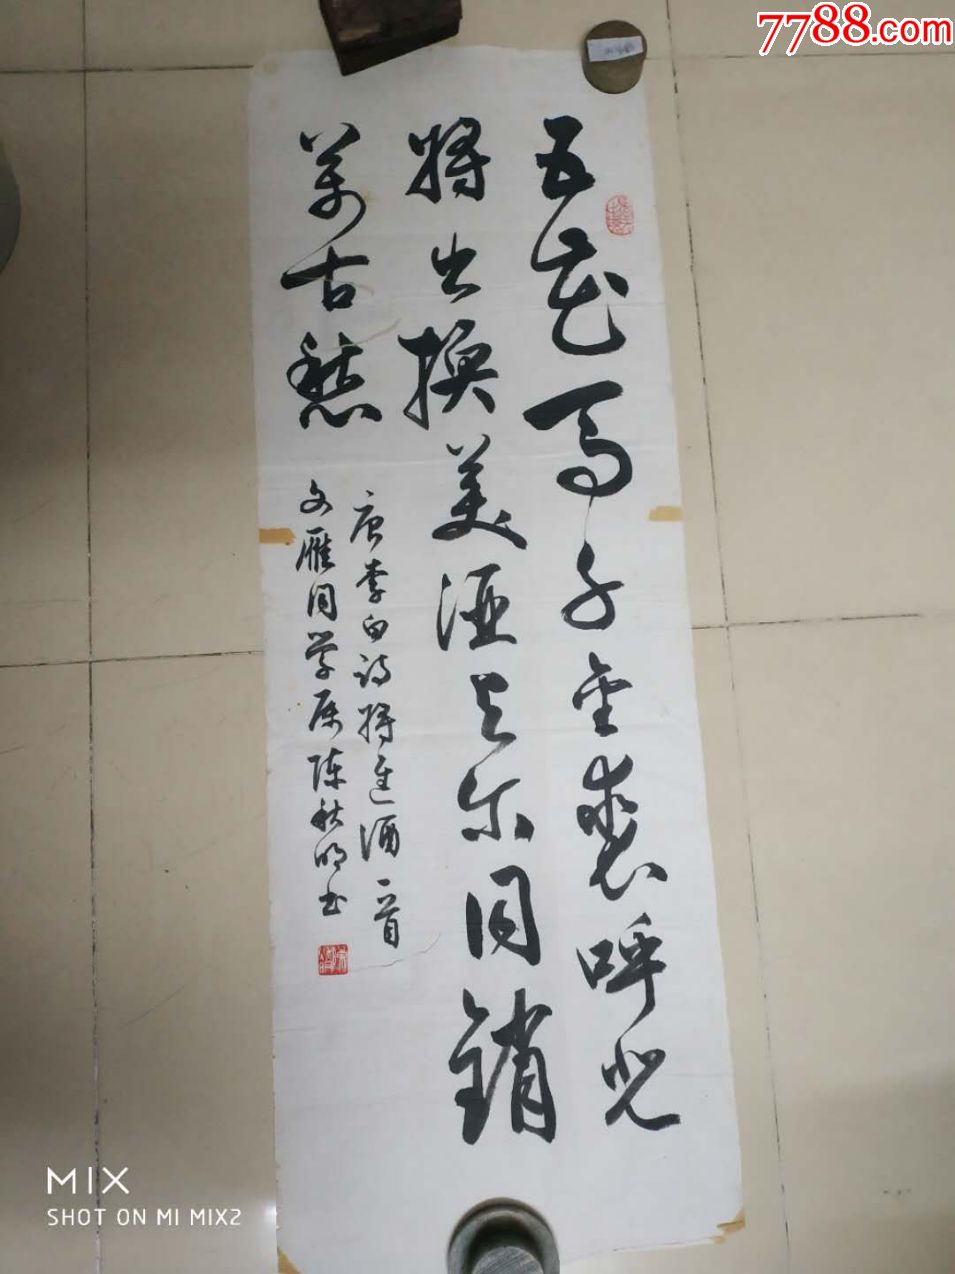 7788.com
五花马千金裘呼儿
将出换美酒与尔同销
万古愁
唐李白诗将进酒一首
文雁同学属陈秋明书
MIX
SHOT ON MI MIX2